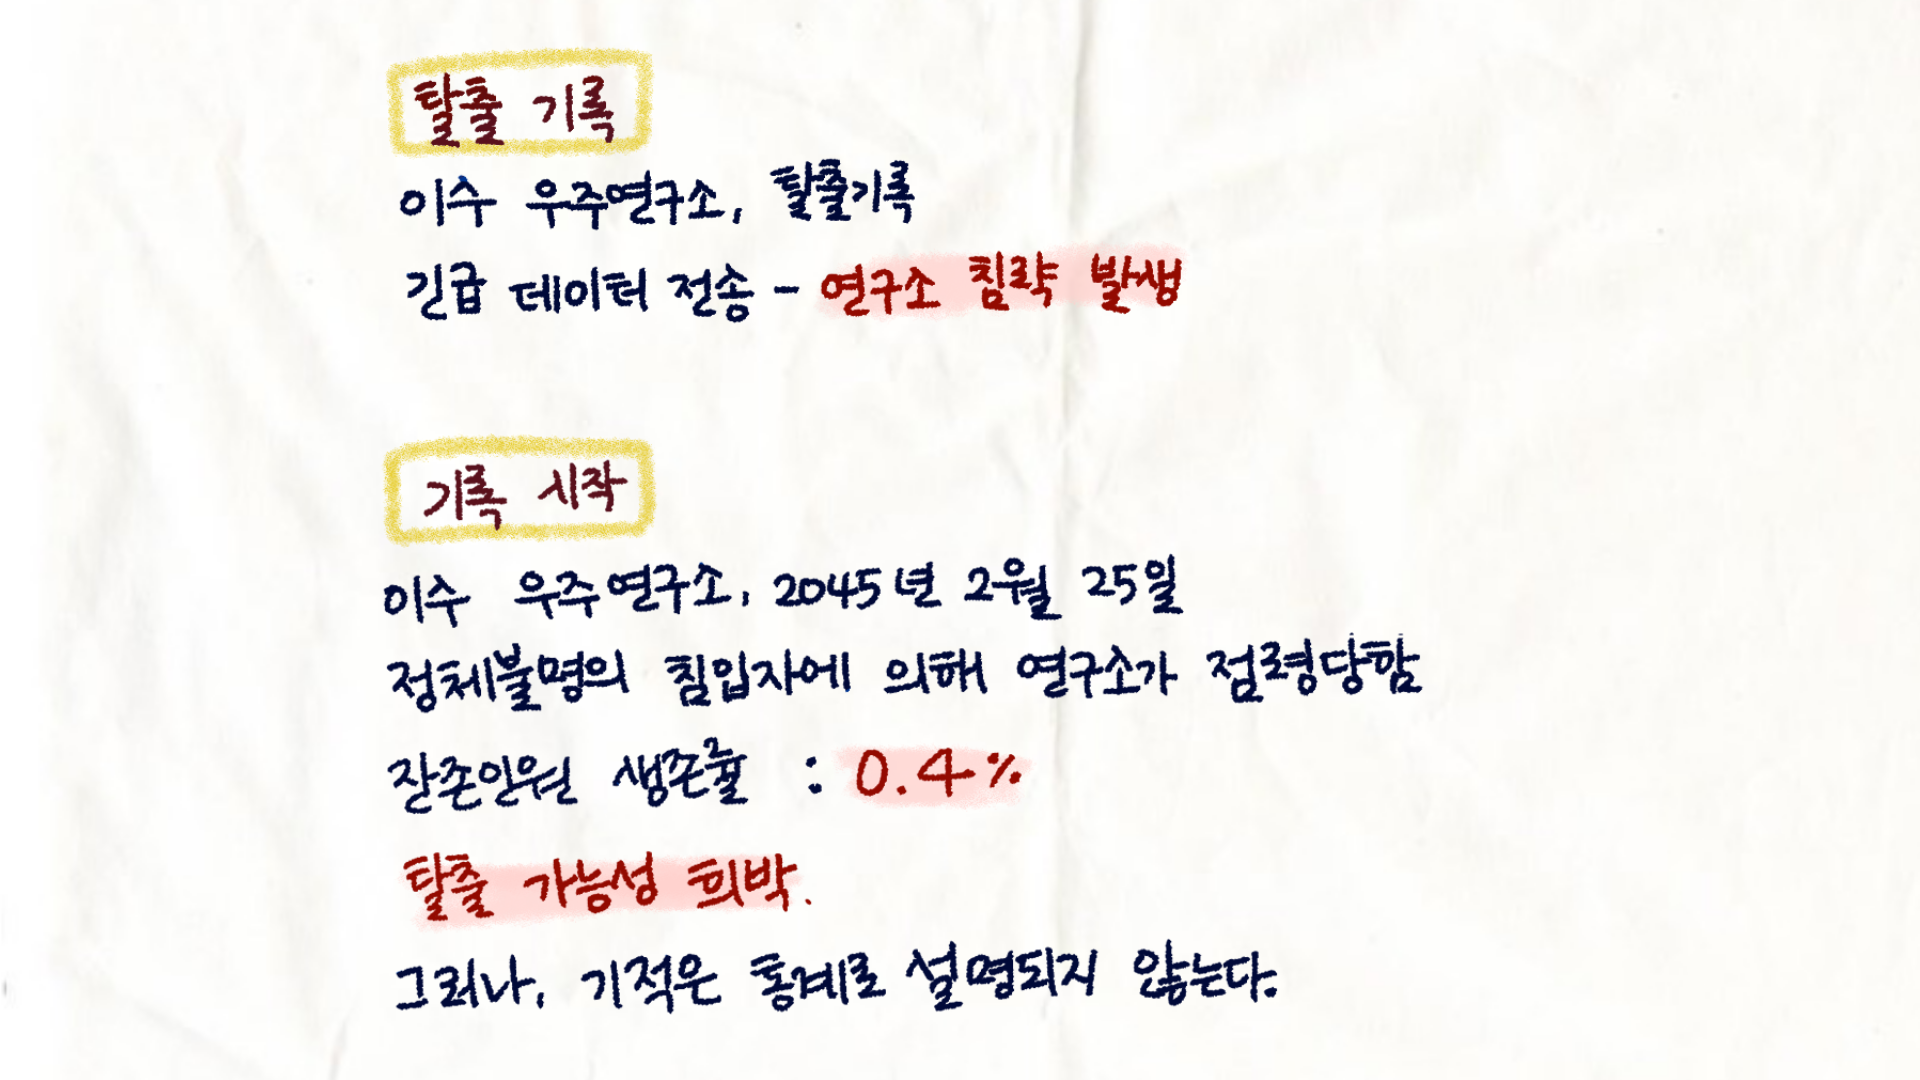 탈출 기록
이수 우주연구소, 탈출기록
긴급 데이터 전송 - 연구소 침략 발생
기록 시작
이수 우주연구소, 2045년 2월 25일
정체불명의 침입자에 의해 연구소가 점령당함
잔존인원 생존율 : 0.4%
탈출 가능성 희박.
그러나, 기적은 통계로 설명되지 않는다.